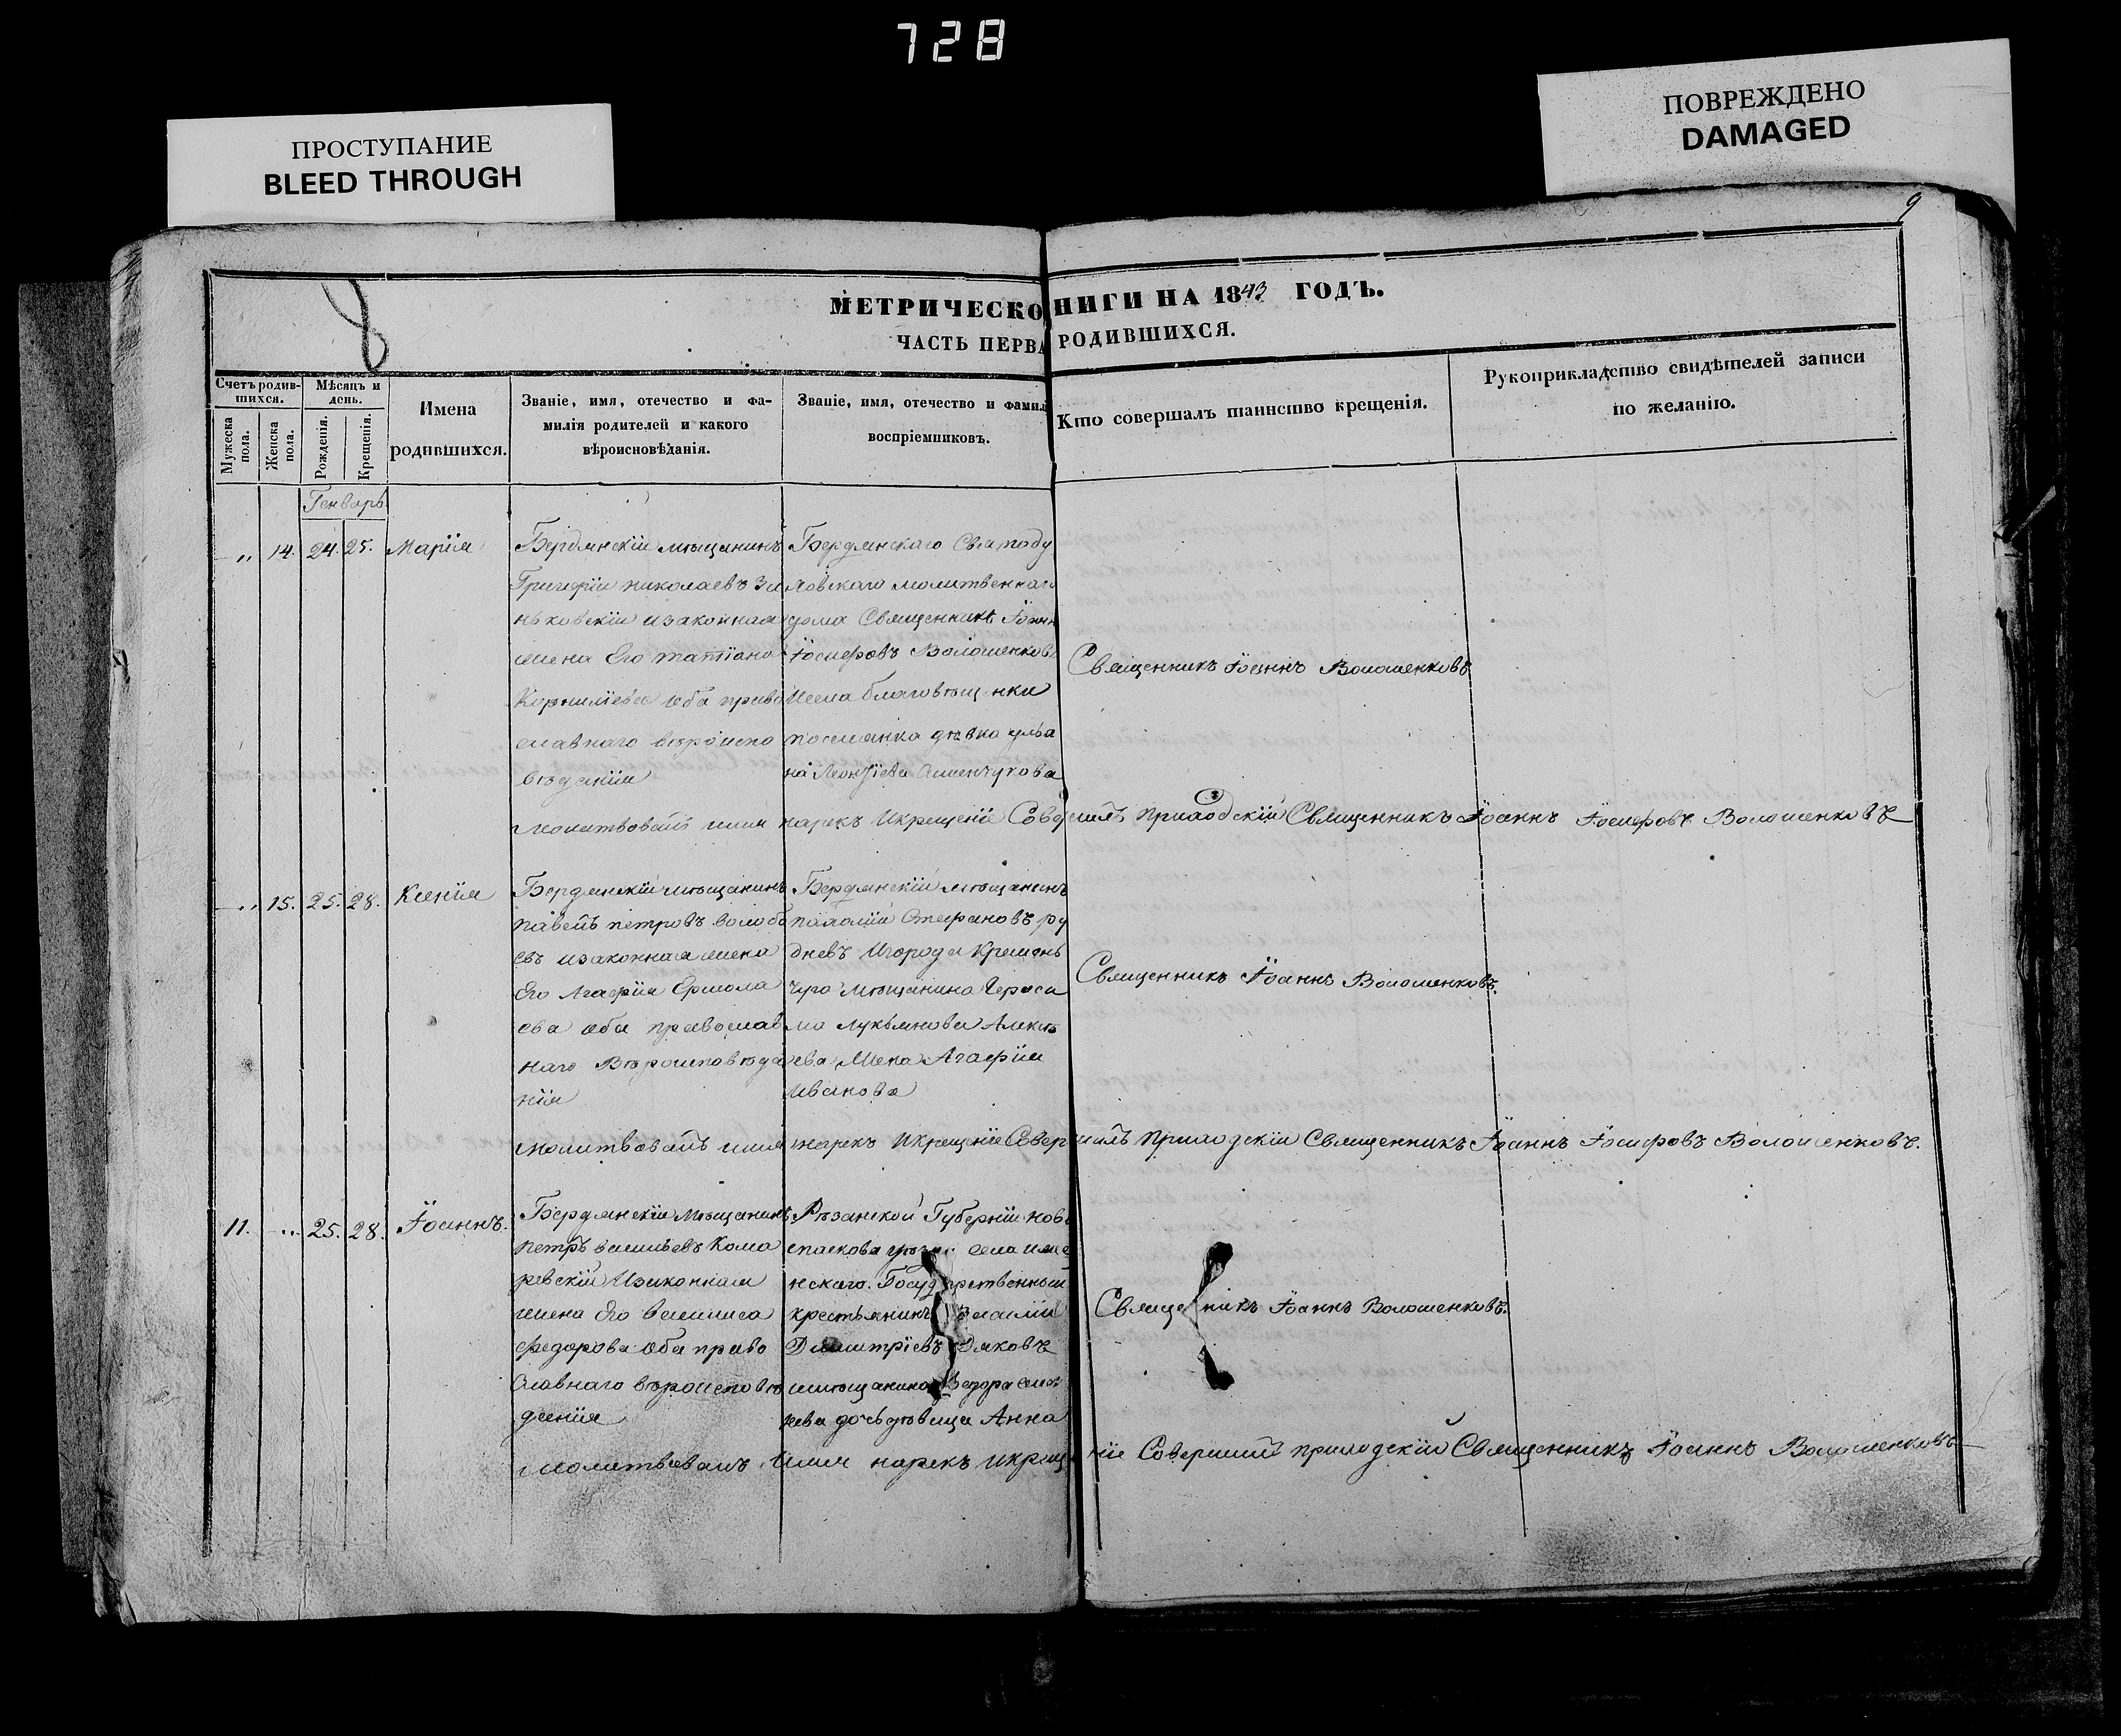 728
ПРОСТУПАНИЕ
BLEED THROUGH
ПОВРЕЖДЕНО
DAMAGED
9
8
МЕТРИЧЕСКО НИГИ НА 1843 ГОДЪ.
ЧАСТЬ ПЕРВА РОДИВШИХСЯ.
Счетъ родив-
шихся.
Мужеска пола.
Женска пола.
Мѣсяцъ и
день.
Рожденія.
Крещенія.
Имена
родившихся.
Званіе, имя, отечество и фа-
милія родителей и какого
вѣроисповѣданія.
Званіе, имя, отечество и фамил
воспріемниковъ.
Кто совершалъ таинство крещенія.
Рукоприкладство свидѣтелей записи
по желанію.
Генварь
„ 14. 24. 25. Марїя
Бердянскїй мѣщанинъ
Григорїй николаевъ Зи
ньковскїй изаконная
жена Его татїана
Корнилїева оба право
славнаго вѣроиспо
вѣданїя
Бердянскаго
молитвеннаго
дома Священникъ Їоаннъ
Їосифовъ Волошенковъ
благовѣщенки
поселянка дѣвка улья
на Леонтїева
Священникъ Їоаннъ Волошенковъ
молитвовалъ имя нарекъ Икрещенїе Совершилъ приходскїй Священникъ Їоаннъ Їосифовъ Волошенковъ
„ 15. 25. 28. Ксенїя
Бердянскїй мѣщанинъ
павелъ петровъ волобу
евъ изаконная жена
Его Агафїя Ермола
ева оба православ
наго Вѣроисповѣда
нїя
Бердянскїй мѣщанинъ
Стефановъ ру
дневъ Игорода Кремень
чуга мѣщанина Гераси
ма лукьянова Алексѣ
ева Жена Агафїя
иванова
Священникъ Їоаннъ Волошенковъ.
молитвовалъ имя нарекъ Икрещенїе Совершилъ приходскїй Священникъ Їоаннъ Їосифовъ Волошенковъ.
11. „ 25. 28. Їоаннъ.
Бердянскїй Мѣщанинъ
петръ васильевъ Кома
ревскїй Изаконная
жена Его василиса
федорова оба право
Славнаго вѣроисповѣ
данїя
Рѣзанской Губернїи
села
нскаго. Государственный
крестьянинъ
Димитрїевъ Дяковъ
мѣщанина
дочь дѣвица Анна
Священникъ Їоаннъ Волошенковъ.
молитвовалъ Имя нарекъ икрещенїе Совершилъ приходскїй Священникъ Їоаннъ Волошенковъ